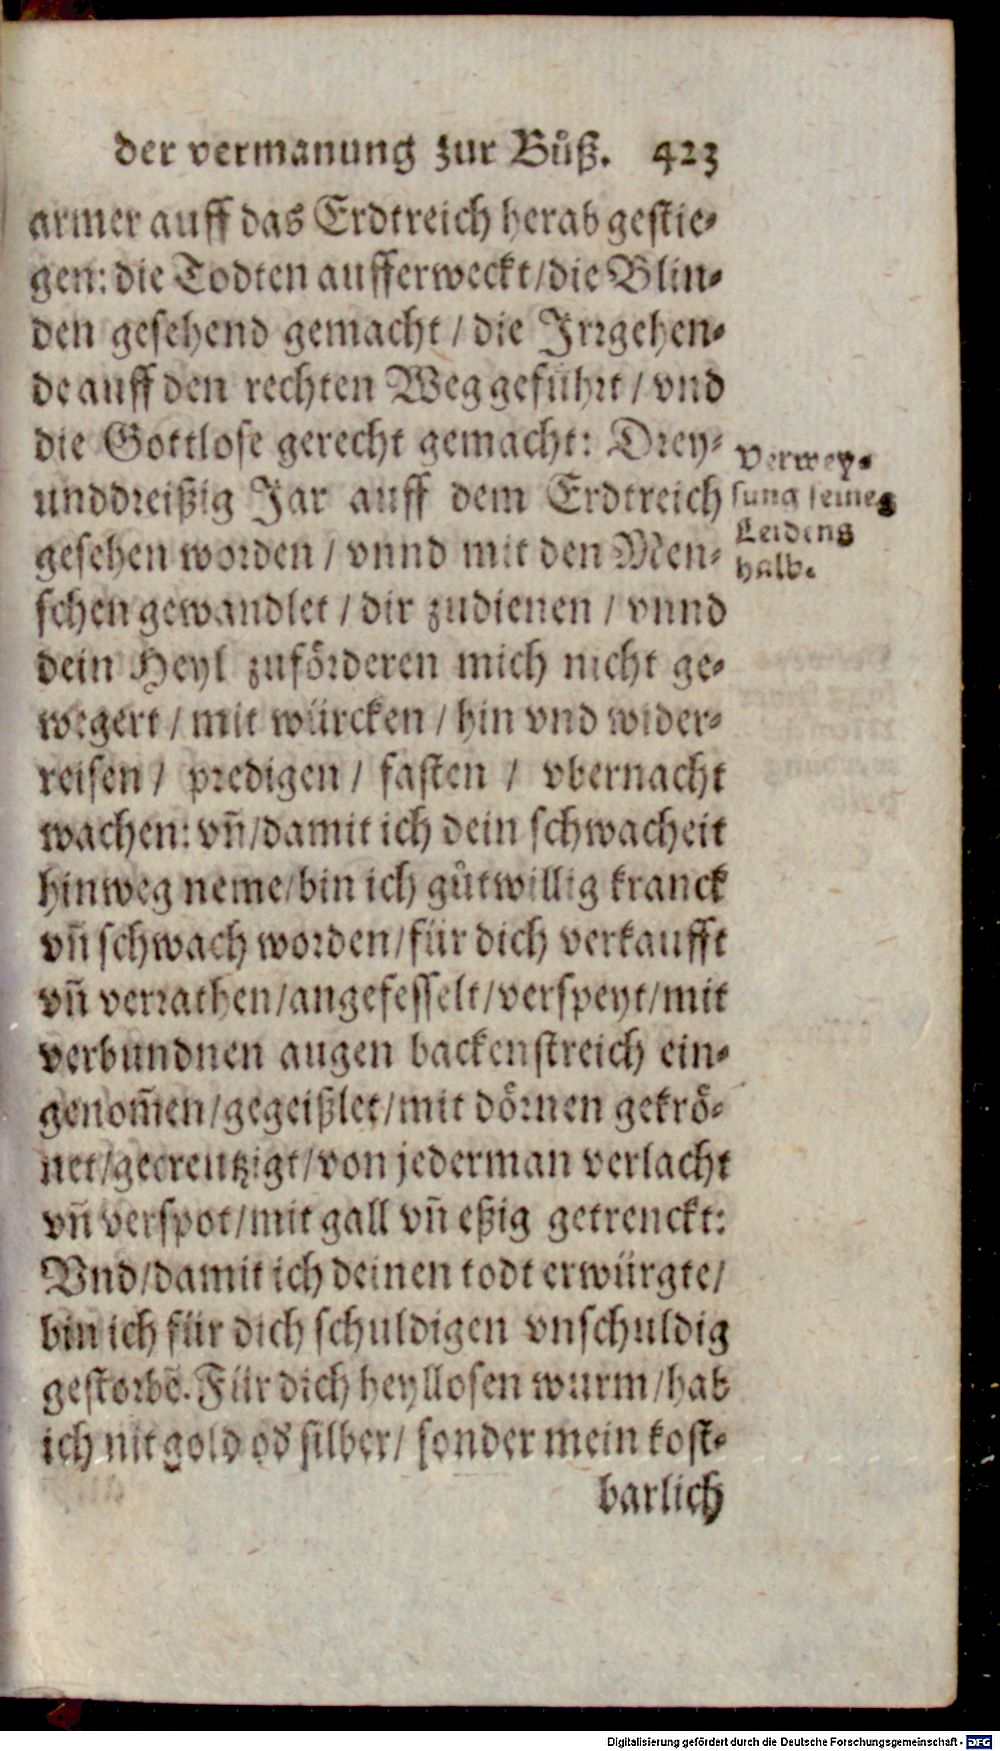 der vermanung zur Bůß. 423
armer auff das Erdtreich herab gestie-
gen: die Todten aufferweckt/die Blin-
den gesehend gemacht / die Irrgehen-
de auff den rechten Weg geführt / vnd
die Gottlose gerecht gemacht: Drey-
unddreißig Jar auff dem Erdtreich
gesehen worden / vnnd mit den Men-
schen gewandlet / dir zudienen / vnnd
dein Heyl zuförderen mich nicht ge-
wegert / mit würcken / hin vnd wider-
reisen / predigen / fasten / vbernacht
wachen: vñ/damit ich dein schwacheit
hinweg neme/bin ich gůtwillig kranck
vñ schwach worden/für dich verkaufft
vñ verrathen/angefesselt/verspeyt/mit
verbundnen augen backenstreich ein-
genom̃en/gegeißlet/mit dörnen gekrö-
net/gecreutzigt/von jederman verlacht
vñ verspot/mit gall vñ eßig getrenckt:
Vnd/damit ich deinen todt erwürgte/
bin ich für dich schuldigen vnschuldig
gestorbē. Für dich heyllosen wurm/hab
ich nit gold od silber/ sonder mein kost-
barlich
Verwey-
sung seines
Leidens
halb.
Digitalisierung gefördert durch die Deutsche Forschungsgemeinschaft - DFG